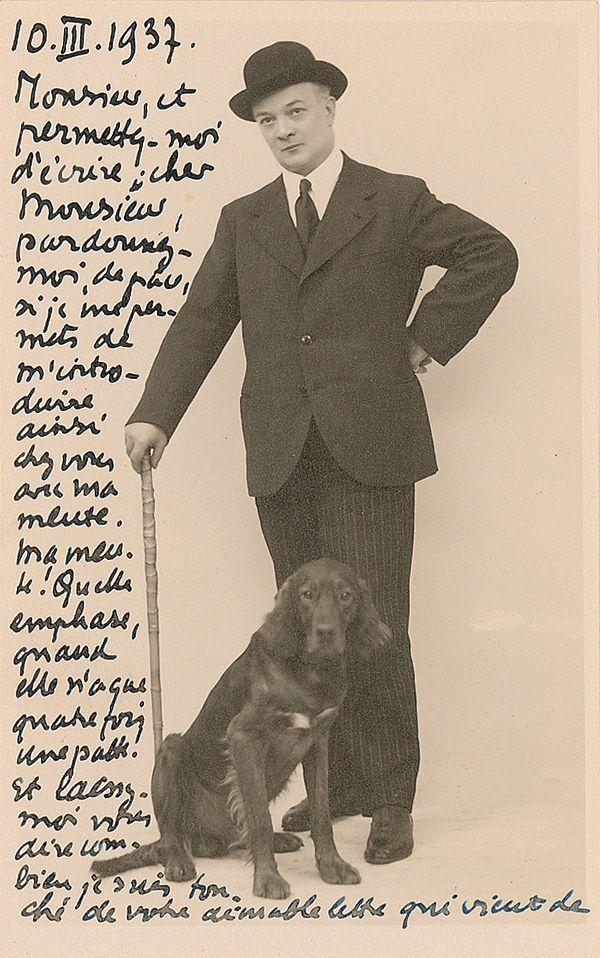 10.III.1937.
Monsieur, et
permettez-moi
d'écrire: cher
Monsieur,
pardonnez-
moi, de peu,
si je me per-
mets de
m'intro-
duire
ainsi
chez vous
avec ma
meute.
Ma meu-
te! Quelle
emphase,
quand
elle n'a que
quatre fois
une patte.
Et laissez-
moi vous
dire com-
bien je suis tou-
ché de votre aimable lettre qui vient de